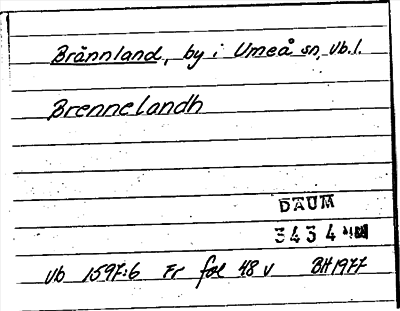 Brännland, by i Umeå sn, Vb. l.
Brennelandh
DAUM
3434
Vb 1597:6 Fr fol 48 v BH 1977